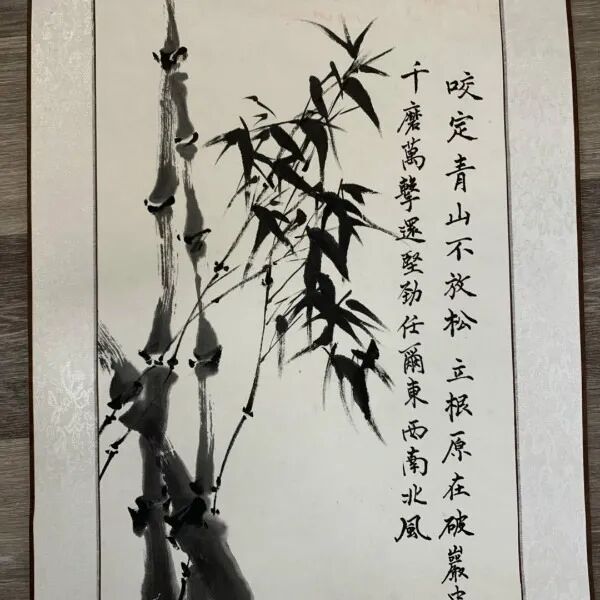 咬定青山不放松 立根原在破巖中
千磨萬擊還堅勁任爾東西南北風